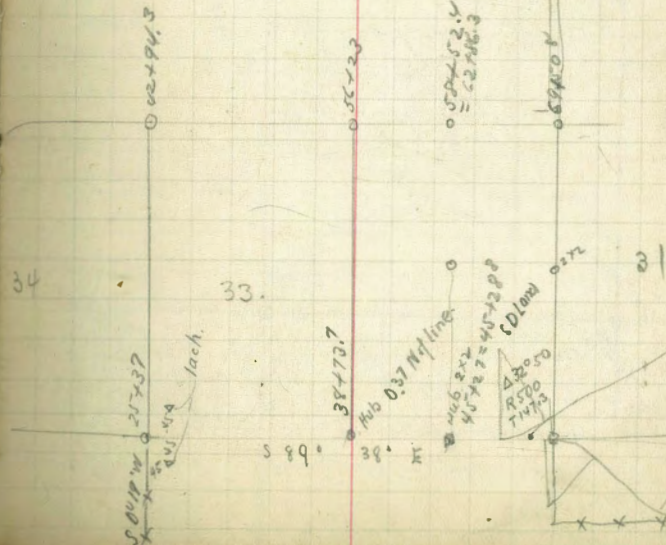 42+94.3
56+23
58+52.4
= 62+86.3
69+50.8
34
33.
31
2x2
25+37
1ach.
38+73.7
Hub 0.37 N of line
Hub 2x2
45+27=45+28.8
Δ 32° 50
R 500
T 147.3
S 89° 38' E
S 0°41' W